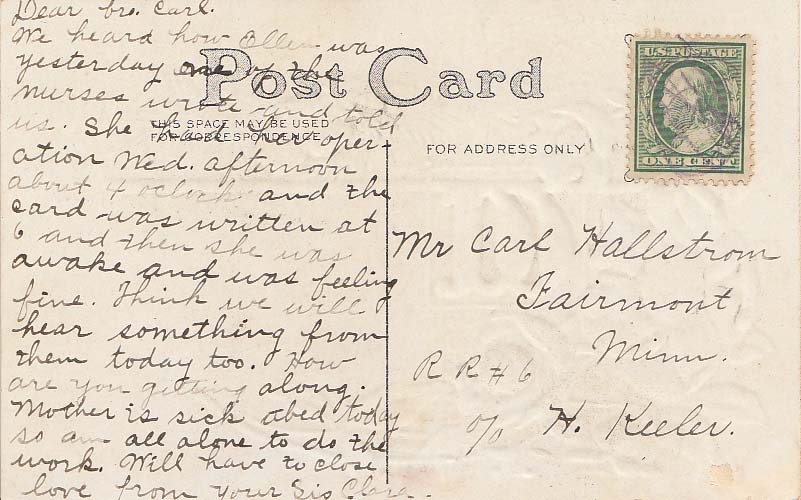 Dear bro. Carl.
We heard how Ellen was
yesterday one of the
nurses wrote and told
us. She had her oper-
ation Wed. afternoon
about 4 oclock and the
card was written at
6 and then she was
awake and was feeling
fine. Think we will
hear something from
them today too. How
are you getting along.
Mother is sick abed today
so am all alone to do the
work. Will have to close
love from your Sis Clara.
Post Card
THIS SPACE MAY BE USED
FOR CORRESPONDENCE
FOR ADDRESS ONLY
U.S. POSTAGE
ONE CENT
Mr Carl Hallstrom
Fairmont,
Minn.
R R # 6
c/o H. Keeler.